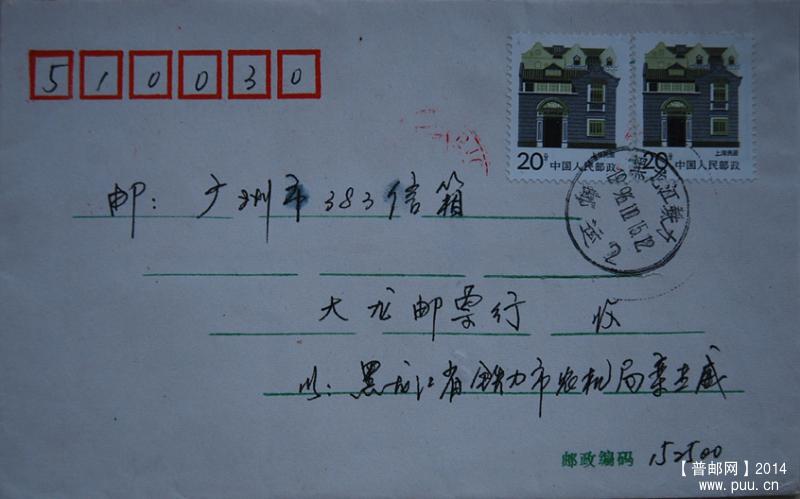 510030
20分 中国人民邮政 上海民居
20分 中国人民邮政 上海民居
黑龙江铁力
1996.10.15.12
邮：广州市383信箱
大龙邮票行 收
从：黑龙江省铁力市农机局栾志威
邮政编码 152500
【普邮网】2014
www.puu.cn